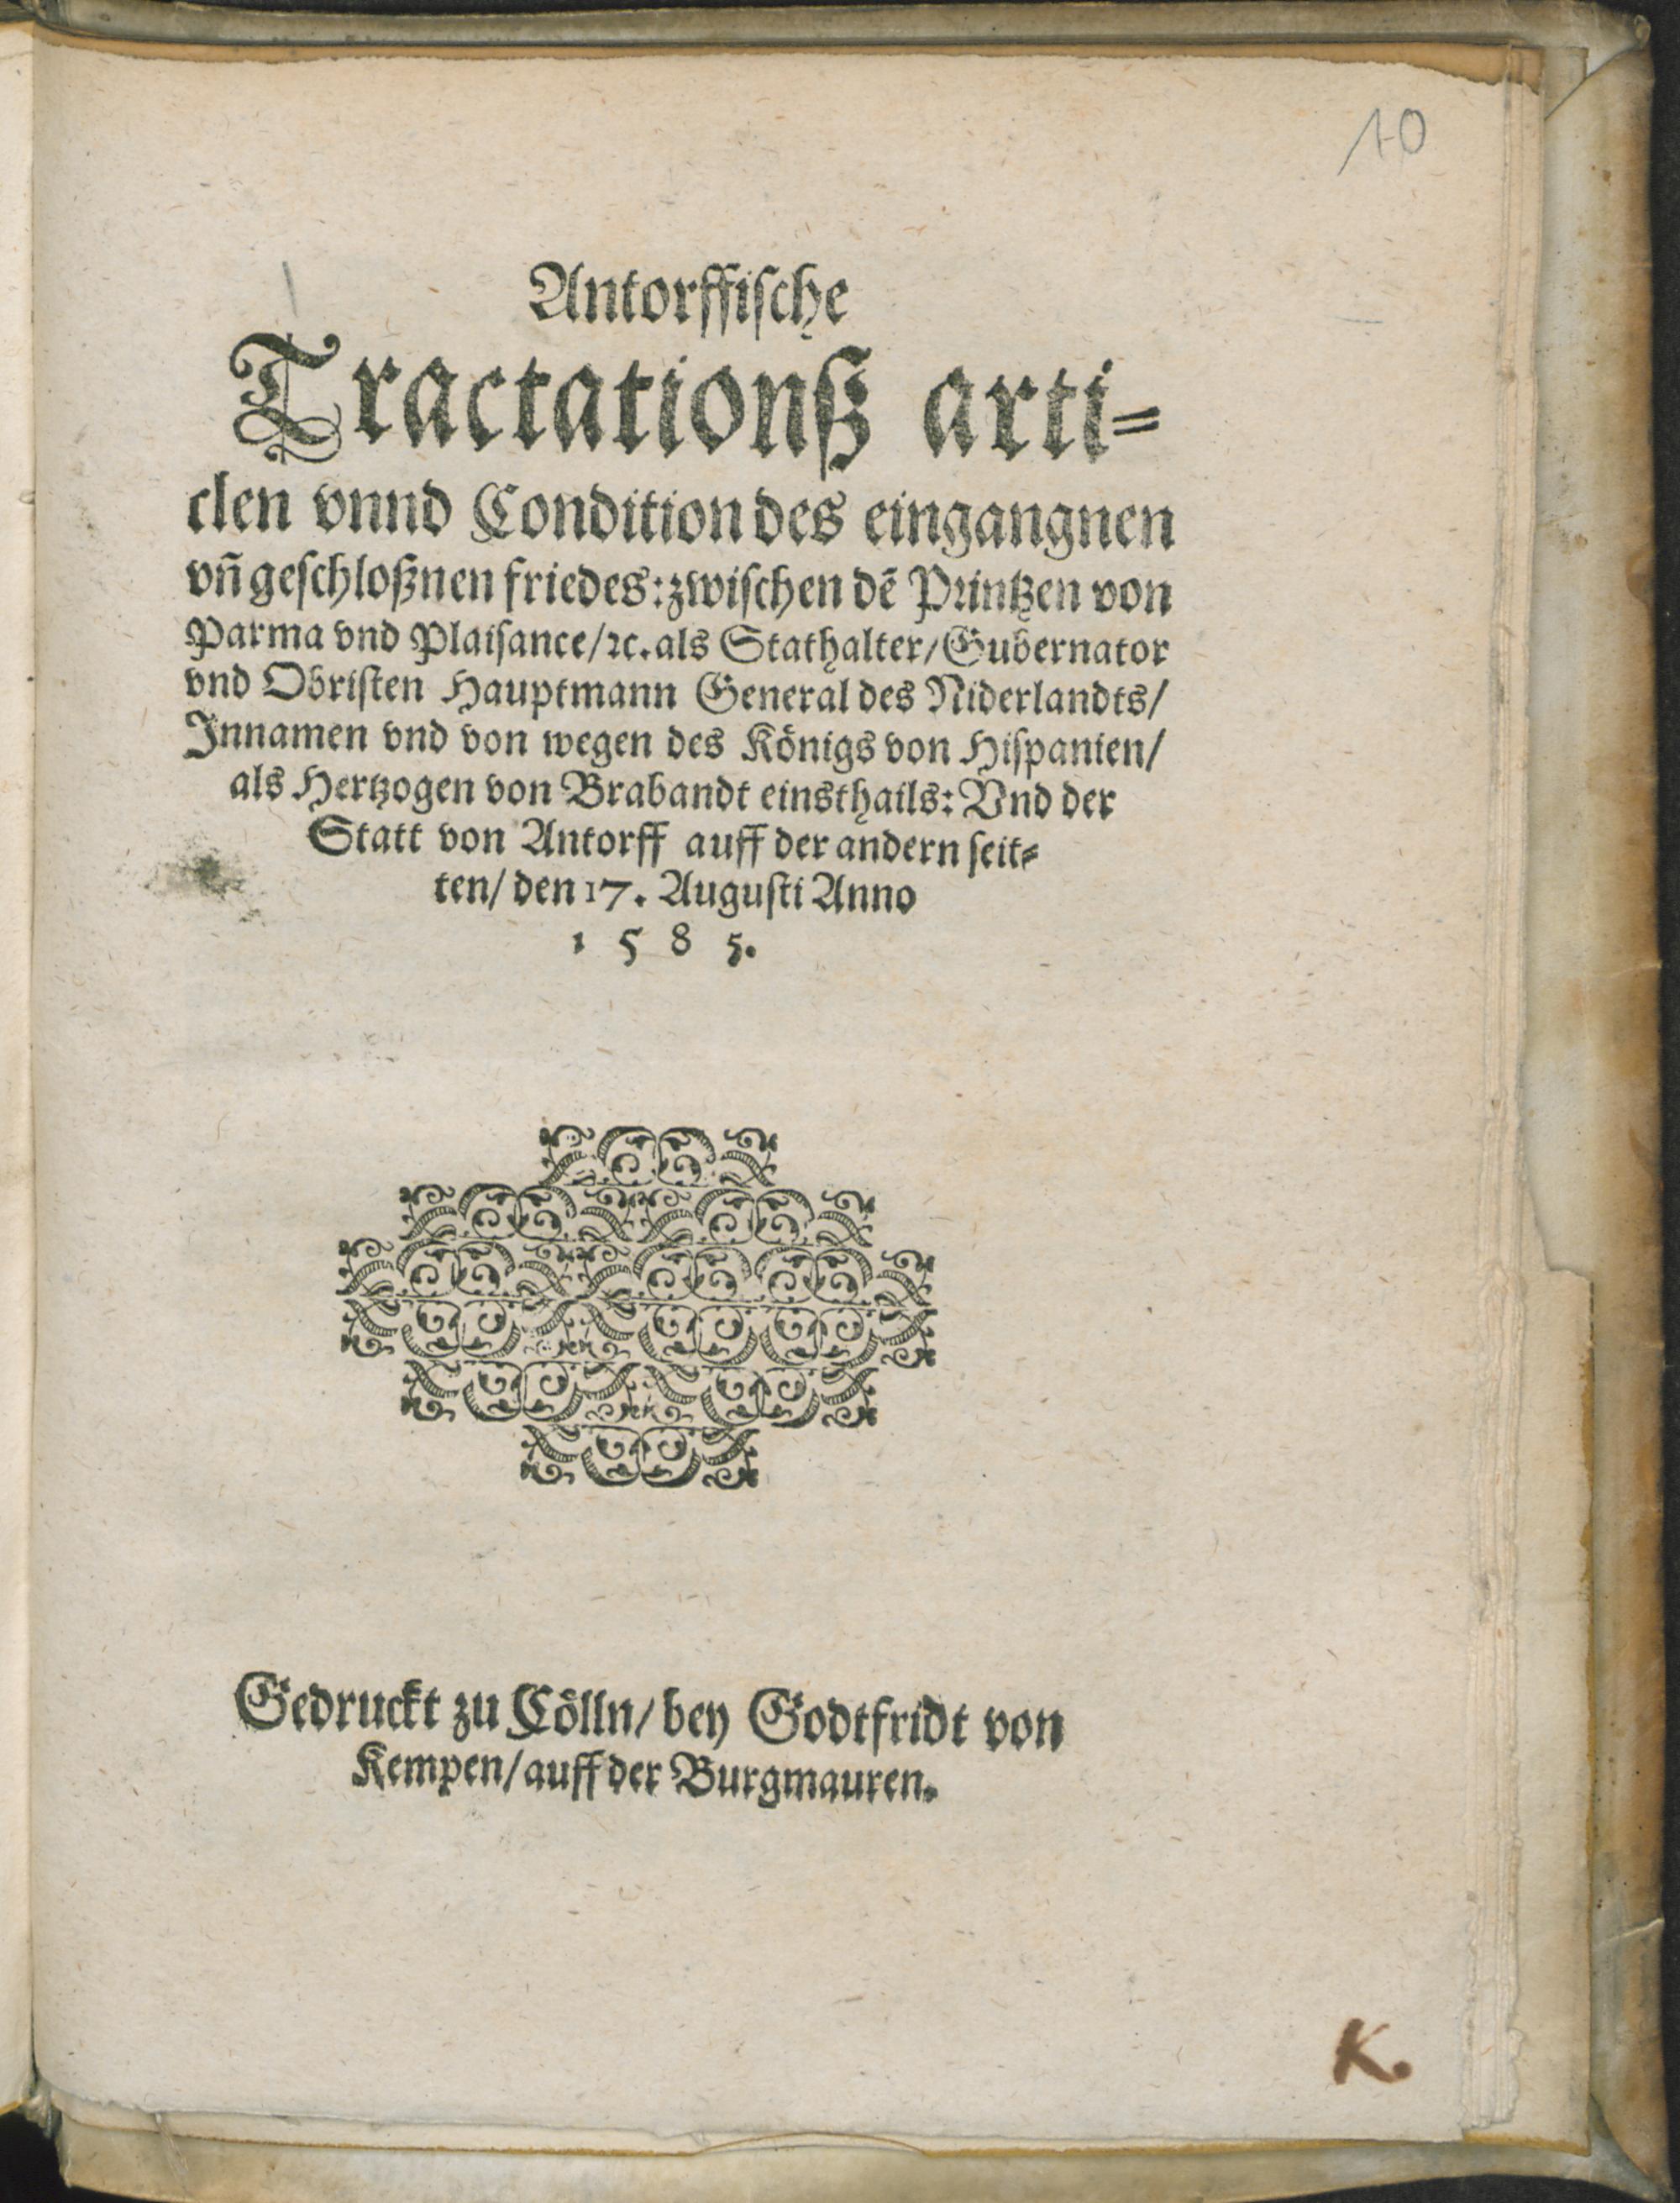 10
Antorffische
Tractationß arti-
clen vnnd Condition des eingangnen
vñ geschloßnen friedes: zwischen dẽ Printzen von
Parma vnd Plaisance/ ꝛc. als Stathalter/ Gubernator
vnd Obristen Hauptmann General des Niderlandts/
Innamen vnd von wegen des Königs von Hispanien/
als Hertzogen von Brabandt einsthails: Vnd der
Statt von Antorff auff der andern seit-
ten/ den 17. Augusti Anno
1 5 8 5.
Gedruckt zu Cölln/ bey Godtfridt von
Kempen/ auff der Burgmauren.
K.